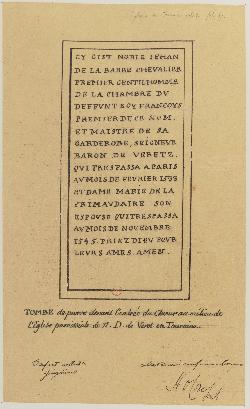 CY GIST NOBLE IEHAN
DE LA BARRE CHEVALIER
PREMIER GENTILHOMME
DE LA CHAMBRE DU
DEFFUNT ROY FRANCOYS
PREMIER DE CE NOM.
ET MAISTRE DE SA
GARDEROBE, SEIGNEUR
BARON DE VERETZ.
QUI TRESPASSA A PARIS
AU MOIS DE FEVRIER 1533
ET DAME MARIE DE LA
PRIMAUDAIRE SON
ESPOUSE QUI TRESPASSA
AU MOIS DE NOVEMBRE
1545. PRIEZ DIEU POUR
LEURS AMES. AMEN.
TOMBE de pierre devant l'entrée du Chœur au milieu de
l'Eglise paroissiale de N. D. de Veret en Touraine.